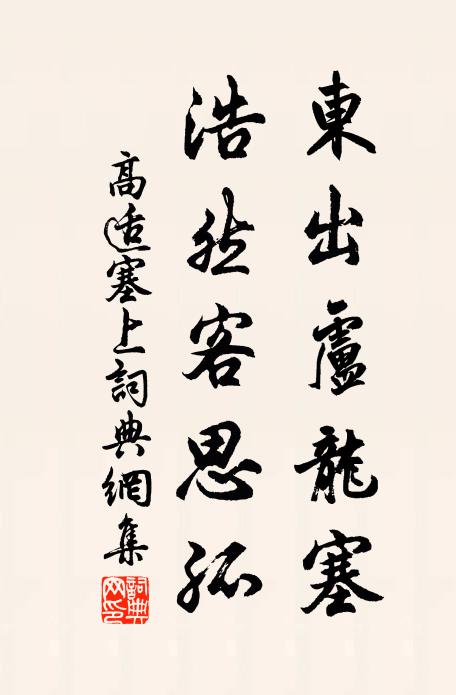 東出盧龍塞
浩然客思孤
高适塞上詞典網集
詞典網印